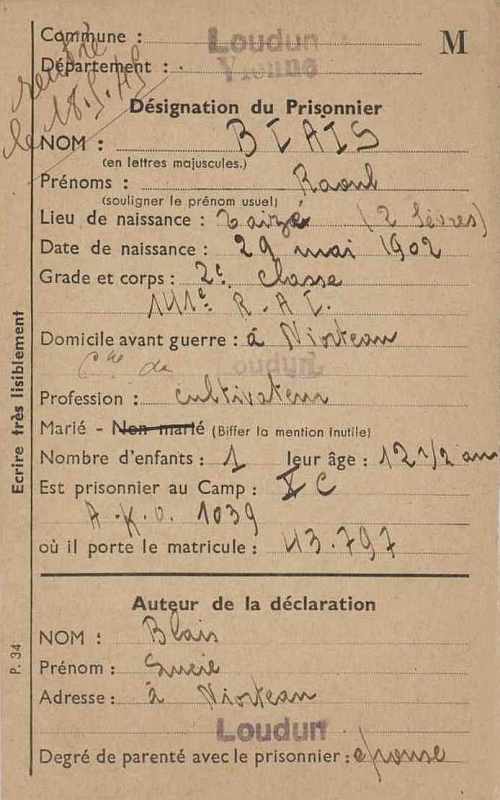 Commune : Loudun
M
Département : Vienne
rentré
le 18.5.45
Désignation du Prisonnier
NOM : BLAIS
(en lettres majuscules.)
Prénoms : Raoul
(souligner le prénom usuel)
Lieu de naissance : Taizé (2 Sèvres)
Date de naissance : 29 mai 1902
Grade et corps : 2e classe
141e R.A.I.
Domicile avant guerre : à Niorteau
Cne de Loudun
Profession : cultivateur
Marié - Non marié (Biffer la mention inutile)
Nombre d'enfants : 1 leur âge : 12 1/2 an
Est prisonnier au Camp : X C
A.K.O. 1039
où il porte le matricule : 43.797
Auteur de la déclaration
NOM : Blais
Prénom : Lucie
Adresse : à Niorteau
Loudun
Degré de parenté avec le prisonnier : épouse
Ecrire très lisiblement
P. 34